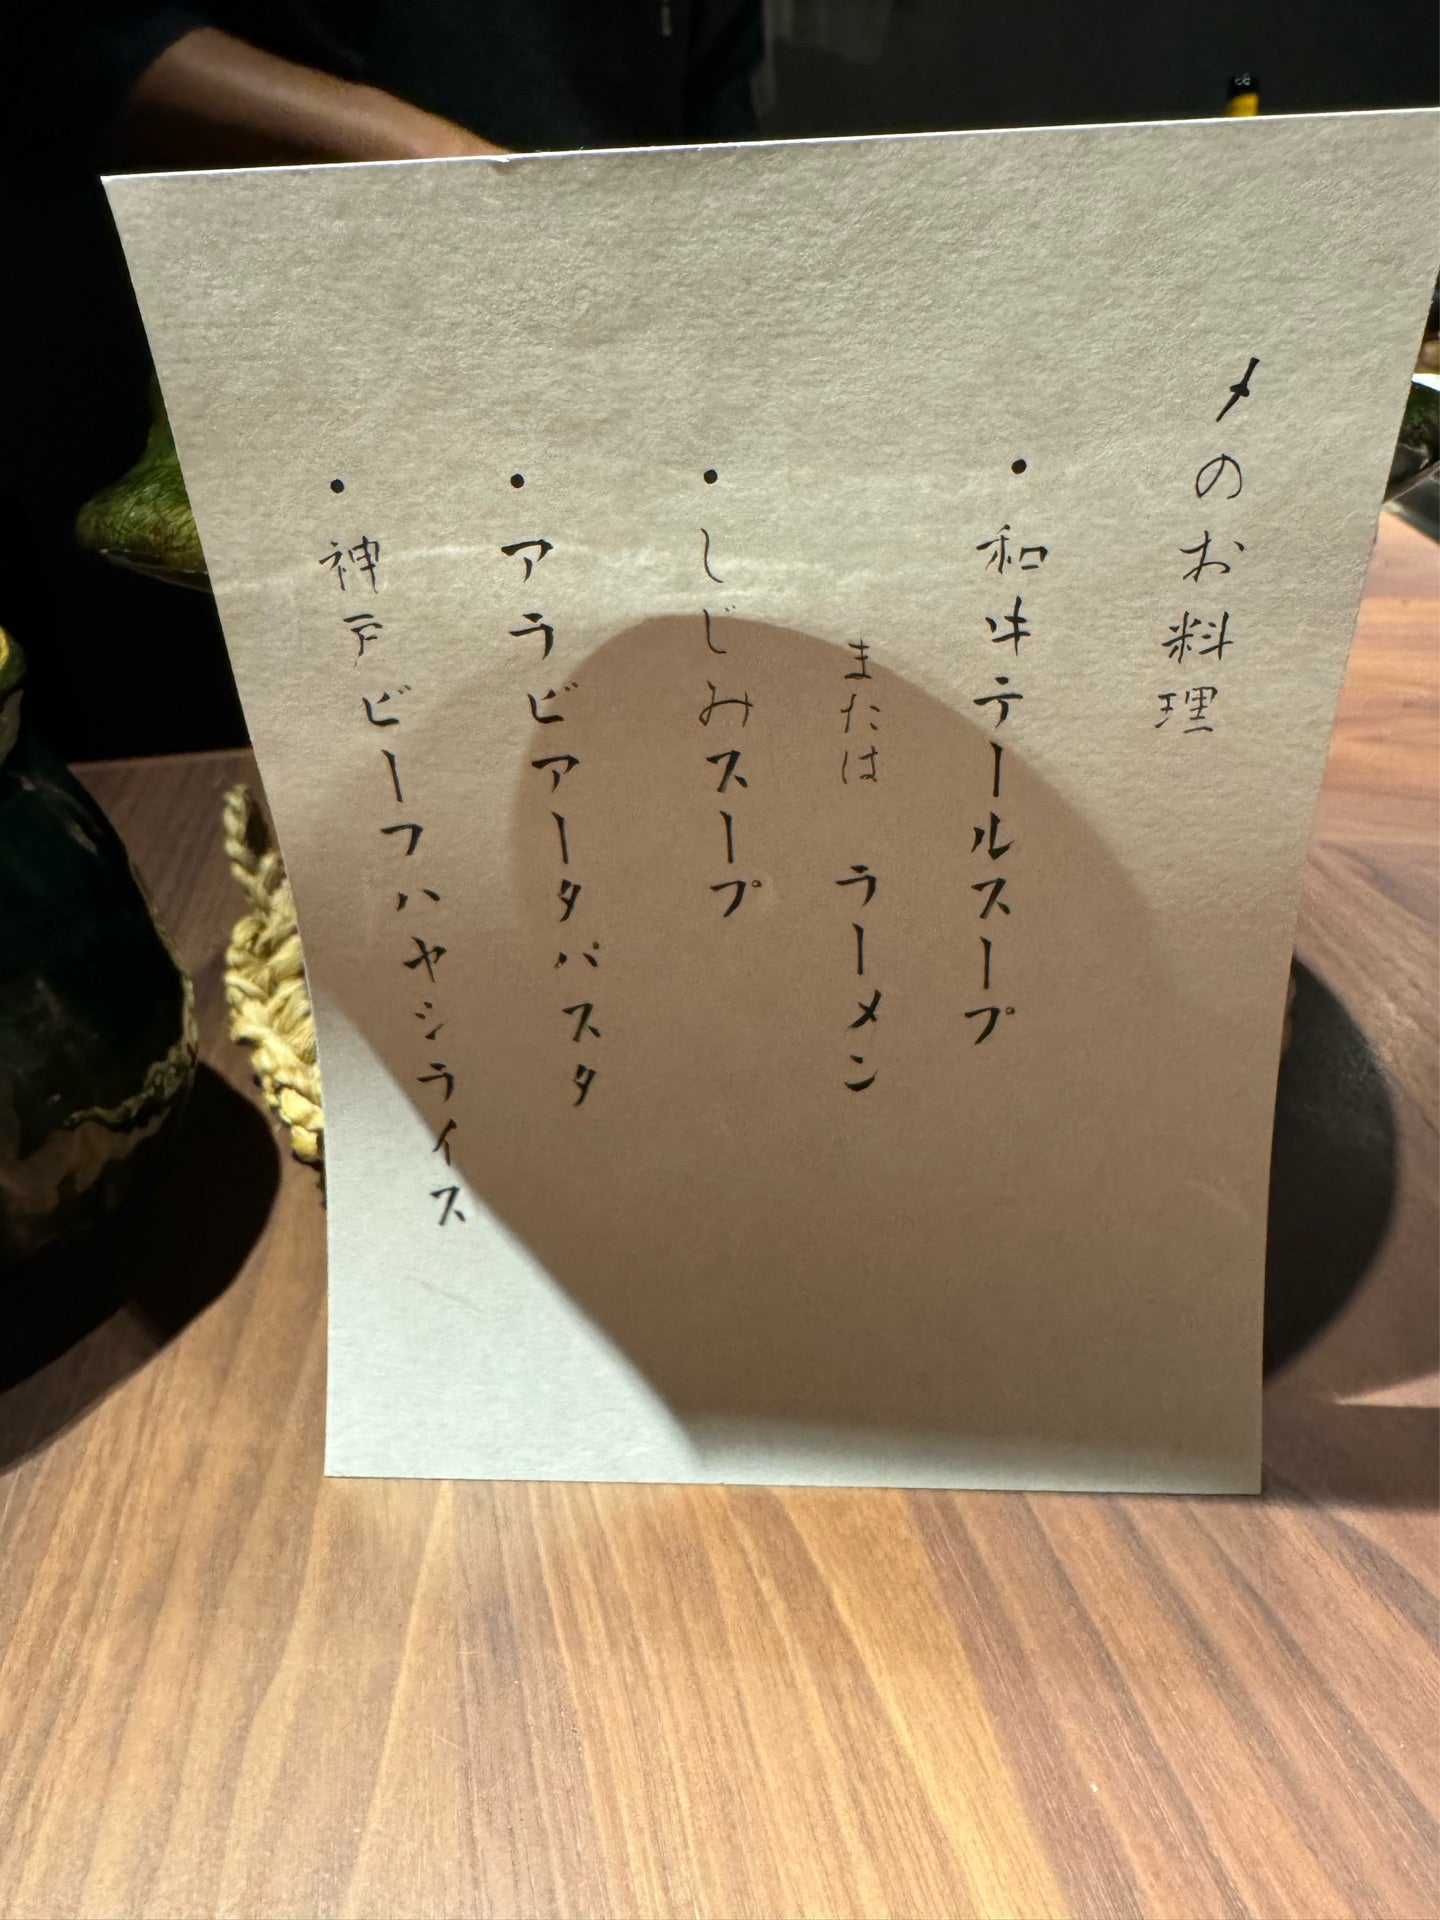 〆のお料理
・和牛テールスープ
または ラーメン
・しじみスープ
・アラビアータパスタ
・神戸ビーフハヤシライス